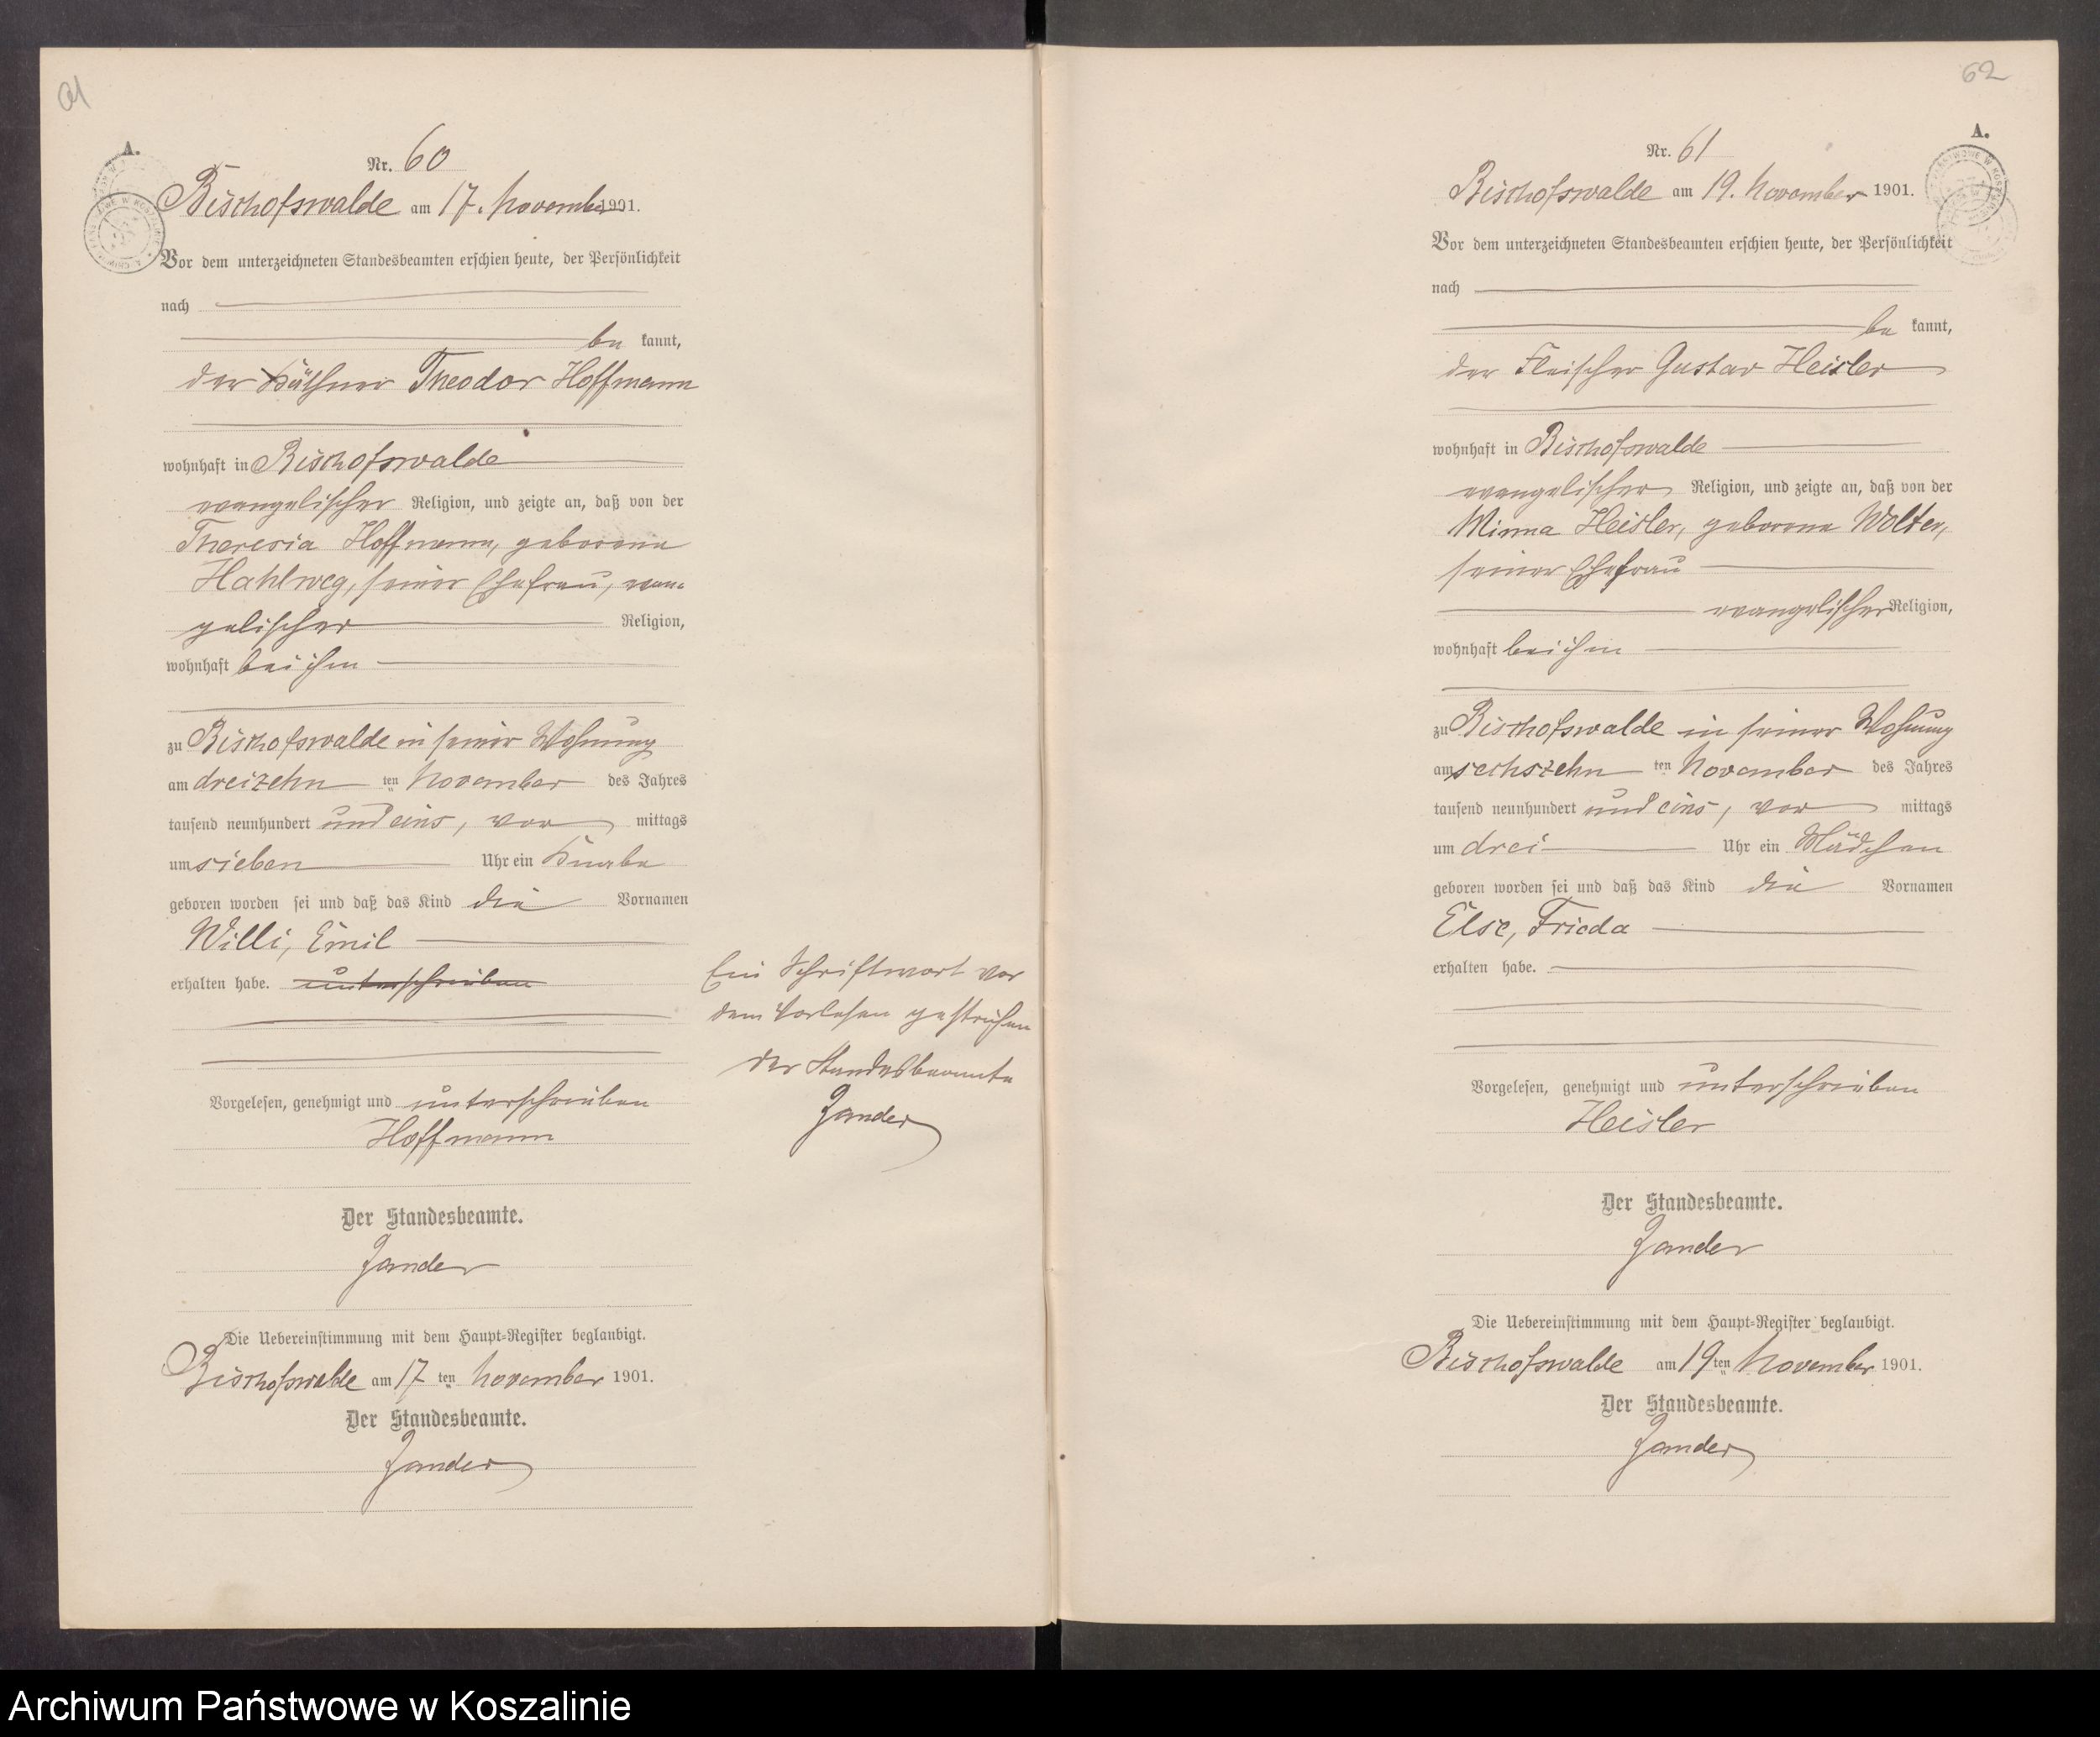 61
A.
Nr. 60
Bischofswalde am 17. November 1901.
Vor dem unterzeichneten Standesbeamten erschien heute, der Persönlichkeit
nach
be kannt,
der Käthner Theodor Hoffmann
wohnhaft in Bischofswalde
evangelischer Religion, und zeigte an, daß von der
Theresia Hoffmann, geborene
Hahlweg, seiner Ehefrau, evan-
gelischer Religion,
wohnhaft bei ihm
zu Bischofswalde in seiner Wohnung
am dreizehn ten November des Jahres
tausend neunhundert und eins, vor mittags
um sieben Uhr ein Knabe
geboren worden sei und daß das Kind die Vornamen
Willi, Emil
erhalten habe. unterschrieben
Vorgelesen, genehmigt und unterschrieben
Hoffmann
Der Standesbeamte.
Zander
Die Uebereinstimmung mit dem Haupt-Register beglaubigt.
Bischofswalde am 17 ten November 1901.
Der Standesbeamte.
Zander
Ein Schriftwort vor
dem Vorlesen gestrichen
Der Standesbeamte
Zander
62
A.
Nr. 61
Bischofswalde am 19. November 1901.
Vor dem unterzeichneten Standesbeamten erschien heute, der Persönlichkeit
nach
be kannt,
der Fleischer Gustav Heisler
wohnhaft in Bischofswalde
evangelischer Religion, und zeigte an, daß von der
Minna Heisler, geborene Wolter,
seiner Ehefrau
evangelischer Religion,
wohnhaft bei ihm
zu Bischofswalde in seiner Wohnung
am sechszehn ten November des Jahres
tausend neunhundert und eins, vor mittags
um drei Uhr ein Mädchen
geboren worden sei und daß das Kind die Vornamen
Else, Frieda
erhalten habe.
Vorgelesen, genehmigt und unterschrieben
Heisler
Der Standesbeamte.
Zander
Die Uebereinstimmung mit dem Haupt-Register beglaubigt.
Bischofswalde am 19 ten November 1901.
Der Standesbeamte.
Zander
Archiwum Państwowe w Koszalinie